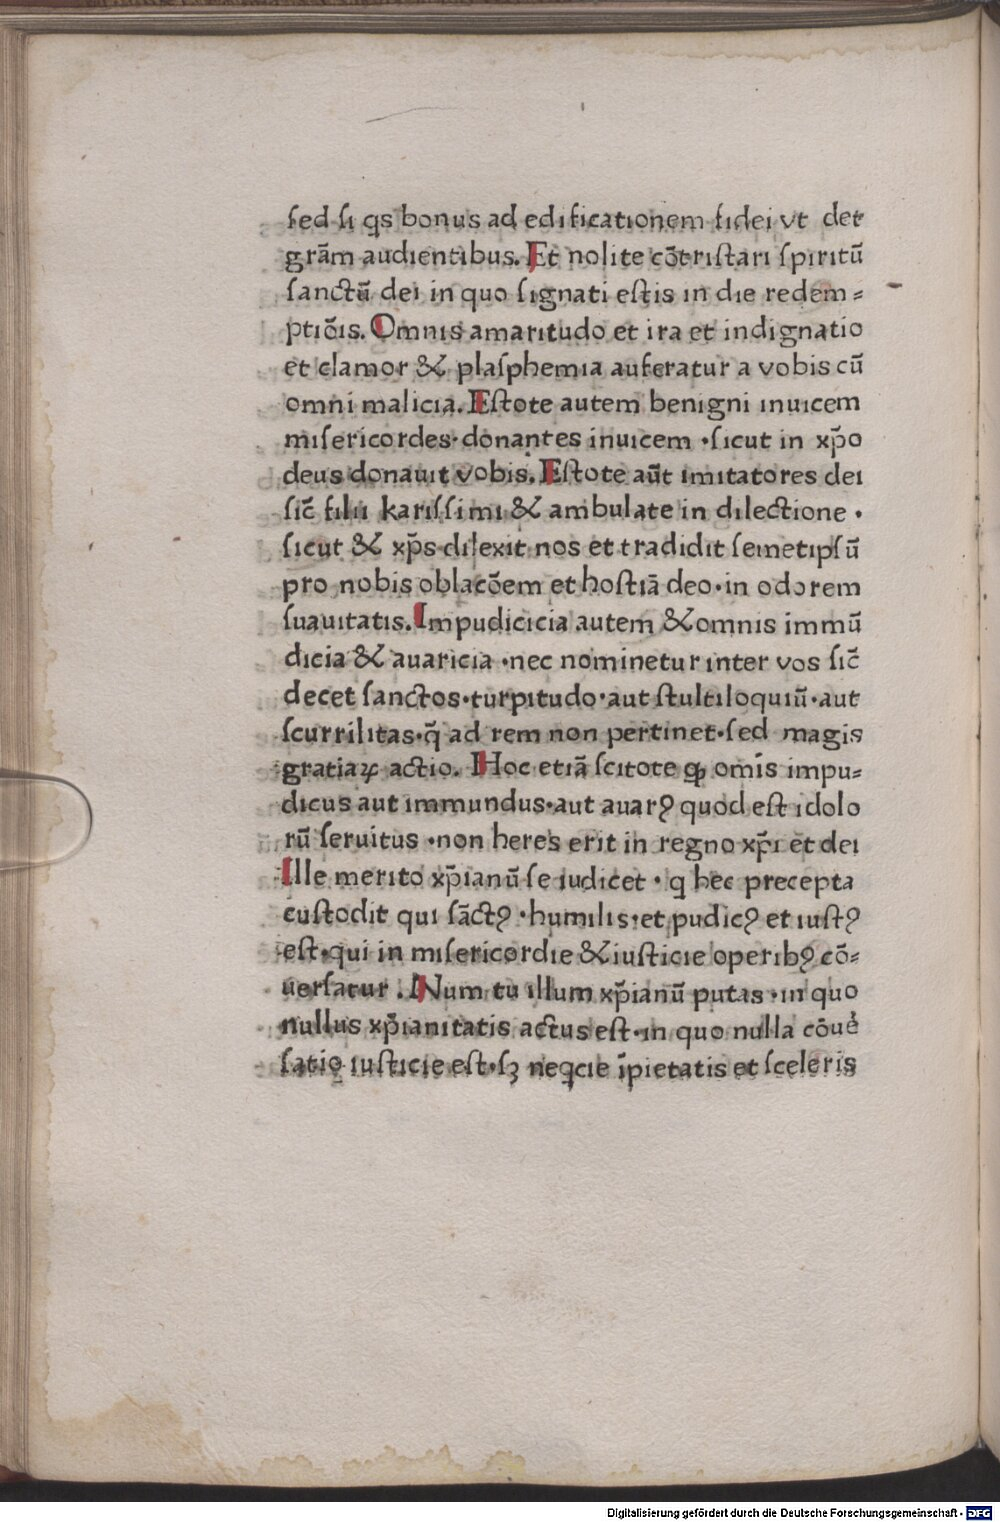 ſed ſi qs bonus ad edificationem fidei vt det
grām audientibus. Et nolite cōtriſtari ſpiritū
ſanctū dei in quo ſignati eſtis in die redem⸗
ptiōis. Omnis amaritudo et ira et indignatio
et clamor & plaſphemia auferatur a vobis cū
omni malicia. Eſtote autem benigni inuicem
miſericordes·donantes inuicem ·ſicut in xp̄o
deus donauit vobis. Eſtote aūt imitatores dei
ſic̄ filii kariſſimi & ambulate in dilectione ·
ſicut & xp̄s dilexit nos et tradidit ſemetipſū
pro nobis oblacōem et hoſtiā deo·in odorem
ſuauitatis. Impudicicia autem & omnis immū
dicia & auaricia ·nec nominetur inter vos ſic̄
decet ſanctos·turpitudo·aut ſtultiloquiū·aut
ſcurrilitas·q̄ ad rem non pertinet·ſed magis
gratiaꝝ actio. Hoc etiā ſcitote ꝙ omīs impu⸗
dicus aut immundus·aut auarꝰ quod eſt idolo
rū ſeruitus ·non heres erit in regno xp̄i et dei
Ille merito xp̄ianū ſe iudicet · q hec precepta
cuſtodit qui ſāctꝰ ·humilis·et pudicꝰ et iuſtꝰ
eſt·qui in miſericordie & iuſticie operibꝰ cō⸗
uerſatur . Num tu illum xp̄ianū putas ·in quo
nullus xp̄ianitatis actus eſt·in quo nulla cōue͛
ſatio iuſticie eſt·ſꝫ neqcie īpietatis et ſceleris
Digitalisierung gefördert durch die Deutsche Forschungsgemeinschaft - DFG